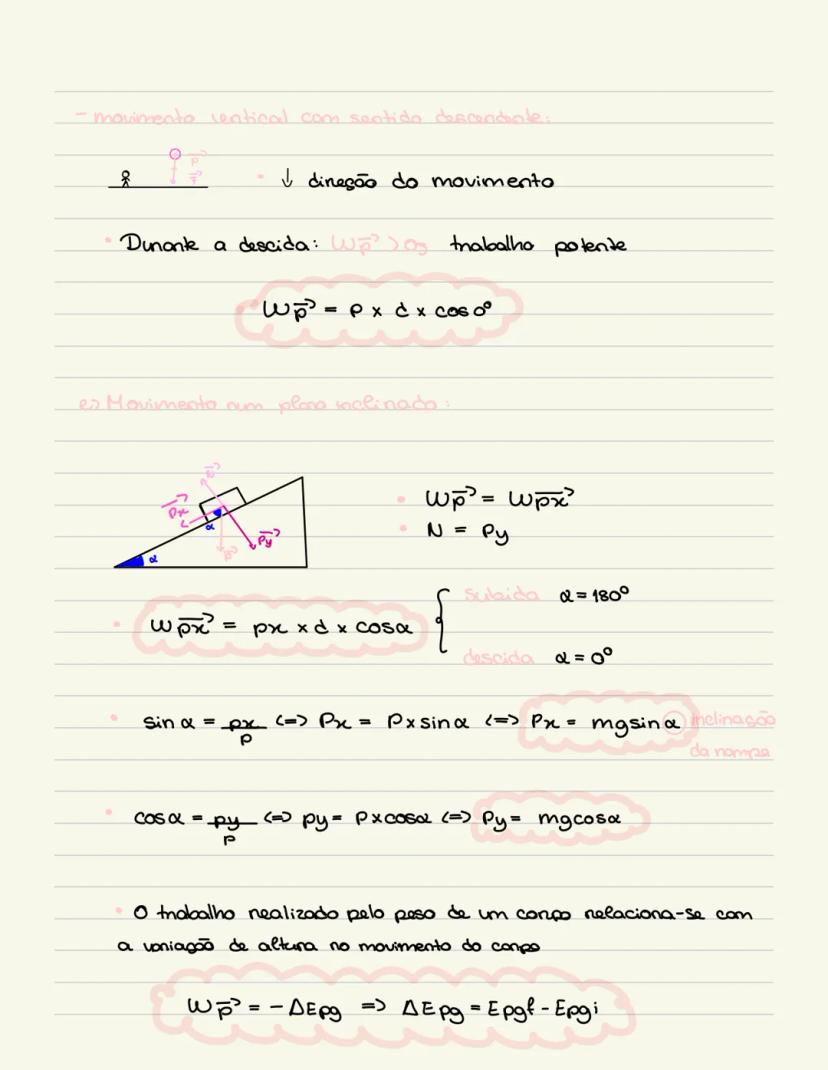 - movimento vertical com sentido descendente:
P⃗
F⃗
• ↓ direção do movimento
• Durante a descida: Wp⃗ > 0J trabalho potente
• Wp⃗ = P x d x cos 0º
e) Movimento num plano inclinado:
Px⃗
α
P⃗
Py⃗
α
• Wp⃗ = Wpx⃗
• N = Py
• Wpx⃗ = px x d x cosα { subida α = 180º
descida α = 0º
• sin α = px/p <=> Px = P x sin α <=> Px = mg sin α inclinação
da rampa
• cos α = py/p <=> py = P x cosα <=> Py = mg cosα
• O trabalho realizado pelo peso de um corpo relaciona-se com
a variação de altura no movimento do corpo
Wp⃗ = - ΔEpg => ΔEpg = Epgf - Epgi